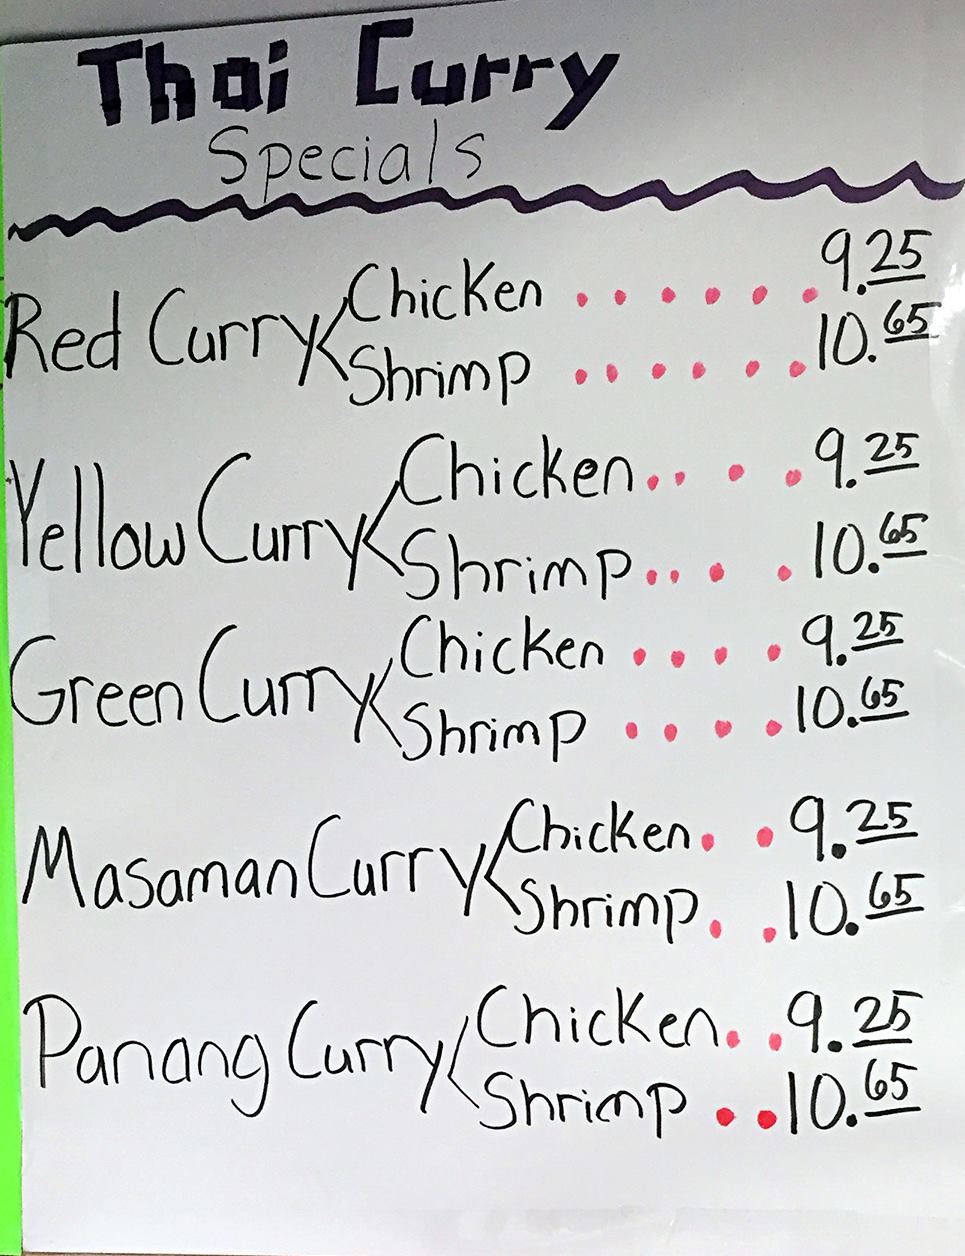 Thai Curry
Specials
Red Curry < Chicken . . . . . . 9.25
Shrimp . . . . . . 10.65
Yellow Curry < Chicken . . . . 9.25
Shrimp . . . . 10.65
Green Curry < Chicken . . . . 9.25
Shrimp . . . . 10.65
Masaman Curry < Chicken . . 9.25
Shrimp . . 10.65
Panang Curry < Chicken . . 9.25
Shrimp . . 10.65